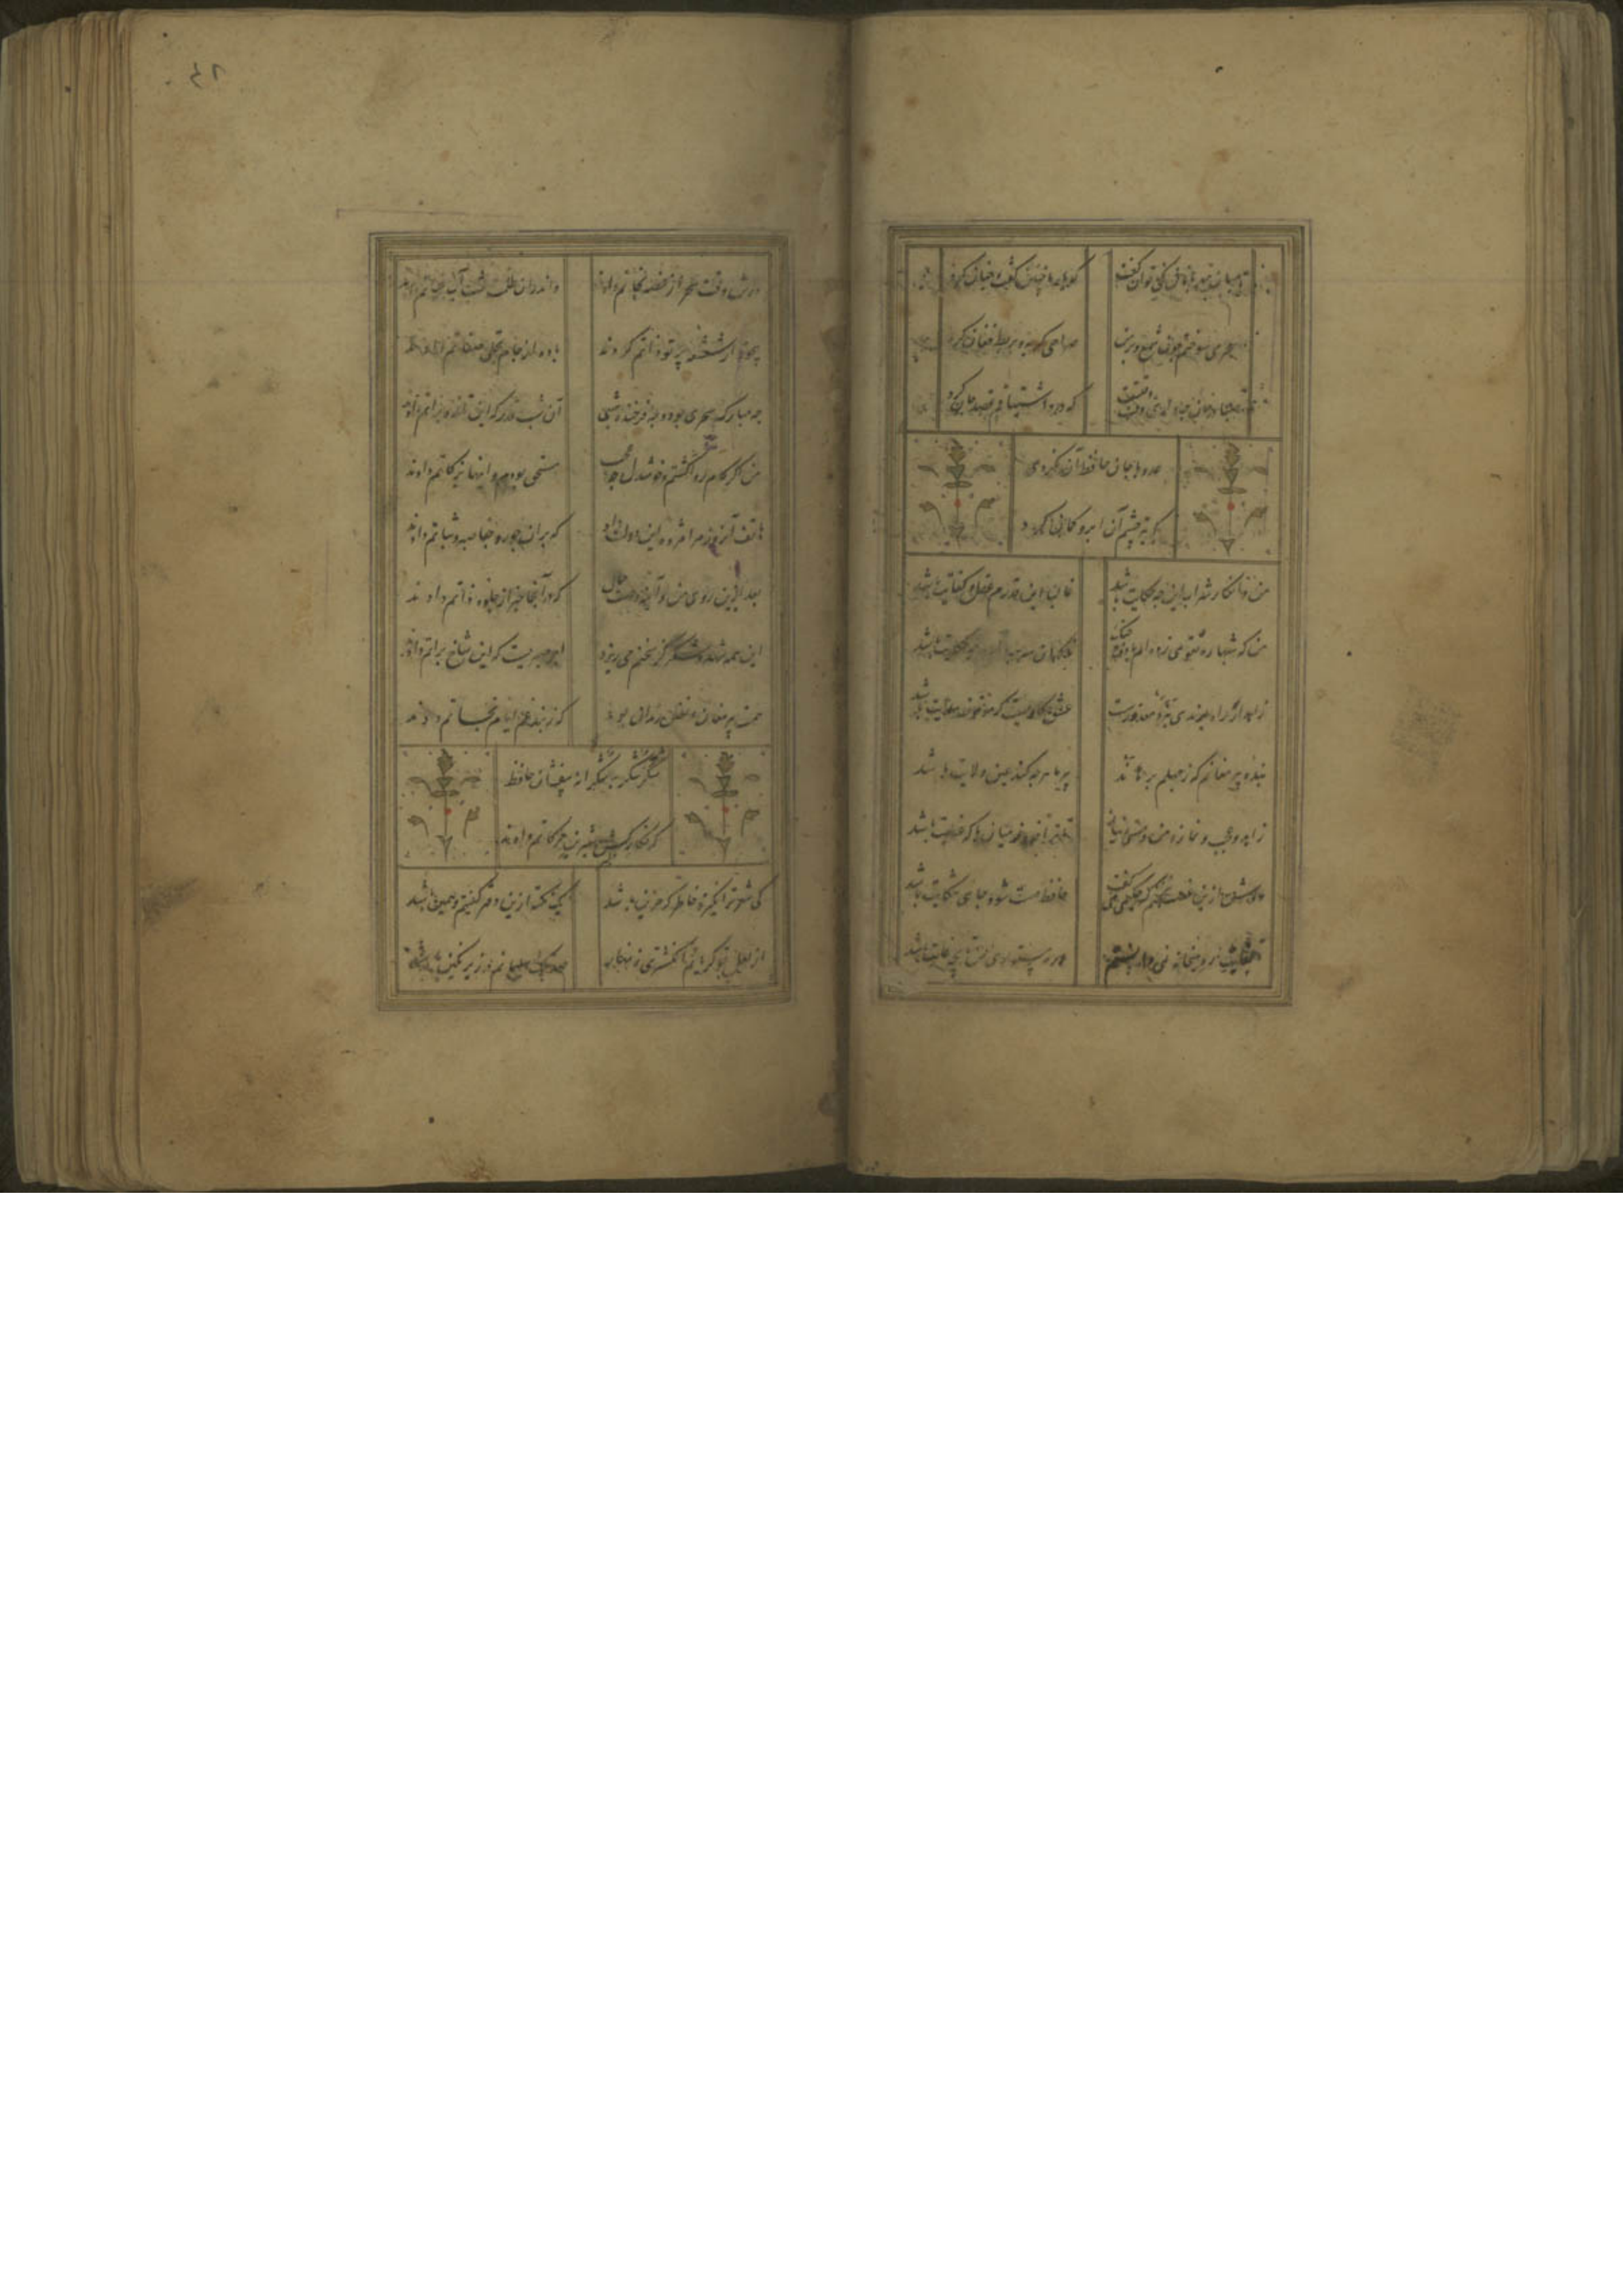 میان مهربانان کی توان گفت
که یار ما چنین گفت و چنان کرد
صراحی گریه و بربط فغان کرد
که درد اشتیاقم قصد جان کرد
عدو با جان حافظ آن نکردی
که تیر چشم آن ابرو کمان کرد
من و انکار شراب این چه حکایت باشد
غالبا این قدرم عقل و کفایت باشد
من که شبها ره تقوی زده‌ام با دف و چنگ
زاهد ار راه برندی نبرد معذورست
عشق کاریست که موقوف هدایت باشد
بنده پیر مغانم که ز جهلم برهاند
پیر ما هرچه کند عین ولایت باشد
زاهد و عجب و نماز و من و مستی و نیاز
تا ترا خود ز میان با که عنایت باشد
دوش ازین غصه نخفتم که حکیمی می‌گفت
حافظ ار مست شود جای شکایت باشد
تا بغایت ره میخانه نمی‌دانستم
۴۶
دوش وقت سحر از غصه نجاتم دادند
واندران ظلمت شب آب حیاتم دادند
بیخود از شعشعه پرتو ذاتم کردند
باده از جام تجلی صفاتم دادند
چه مبارک سحری بود و چه فرخنده شبی
آن شب قدر که این تازه براتم دادند
من اگر کام روا گشتم و خوشدل چه عجب
مستحق بودم و اینها بزکاتم دادند
هاتف آنروز مرا مژده این دولت داد
که بران جور و جفا صبر و ثباتم دادند
بعد ازین روی من و آینه وصف جمال
که در آنجا خبر از جلوه ذاتم دادند
این همه شهد و شکر کز سخنم می‌ریزد
اجر صبریست کزین شاخ نباتم دادند
همت پیر مغان و نفس رندان بود
که ز بند غم ایام نجاتم دادند
شکر شکر به شکرانه بیفشان حافظ
که نگار خوش شیرین حرکاتم دادند
کی شعر تر انگیزد خاطر که حزین باشد
یک نکته ازین دفتر گفتیم و همین باشد
از لعل تو گر یابم انگشتری زنهار
صد ملک سلیمانم در زیر نگین باشد